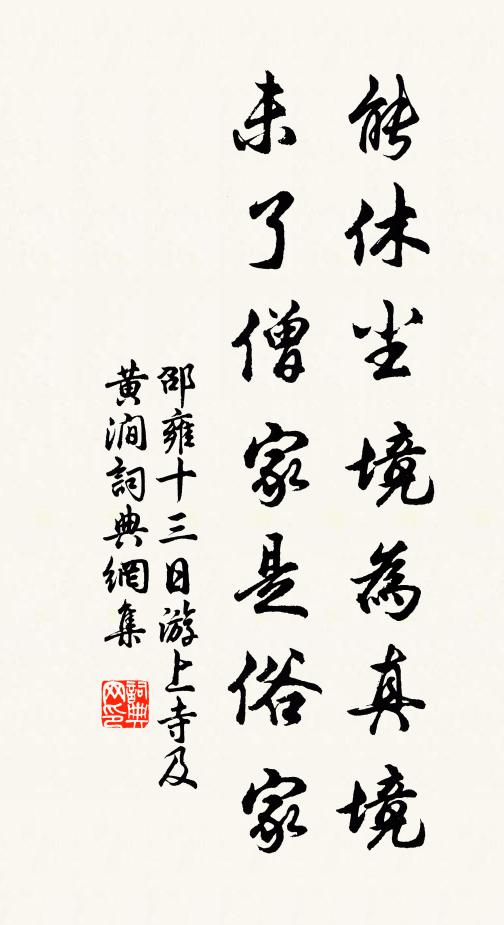 能休尘境為真境
未了僧家是俗家
邵雍十三日游上寺及
黄澗詞典網集
詞典网印